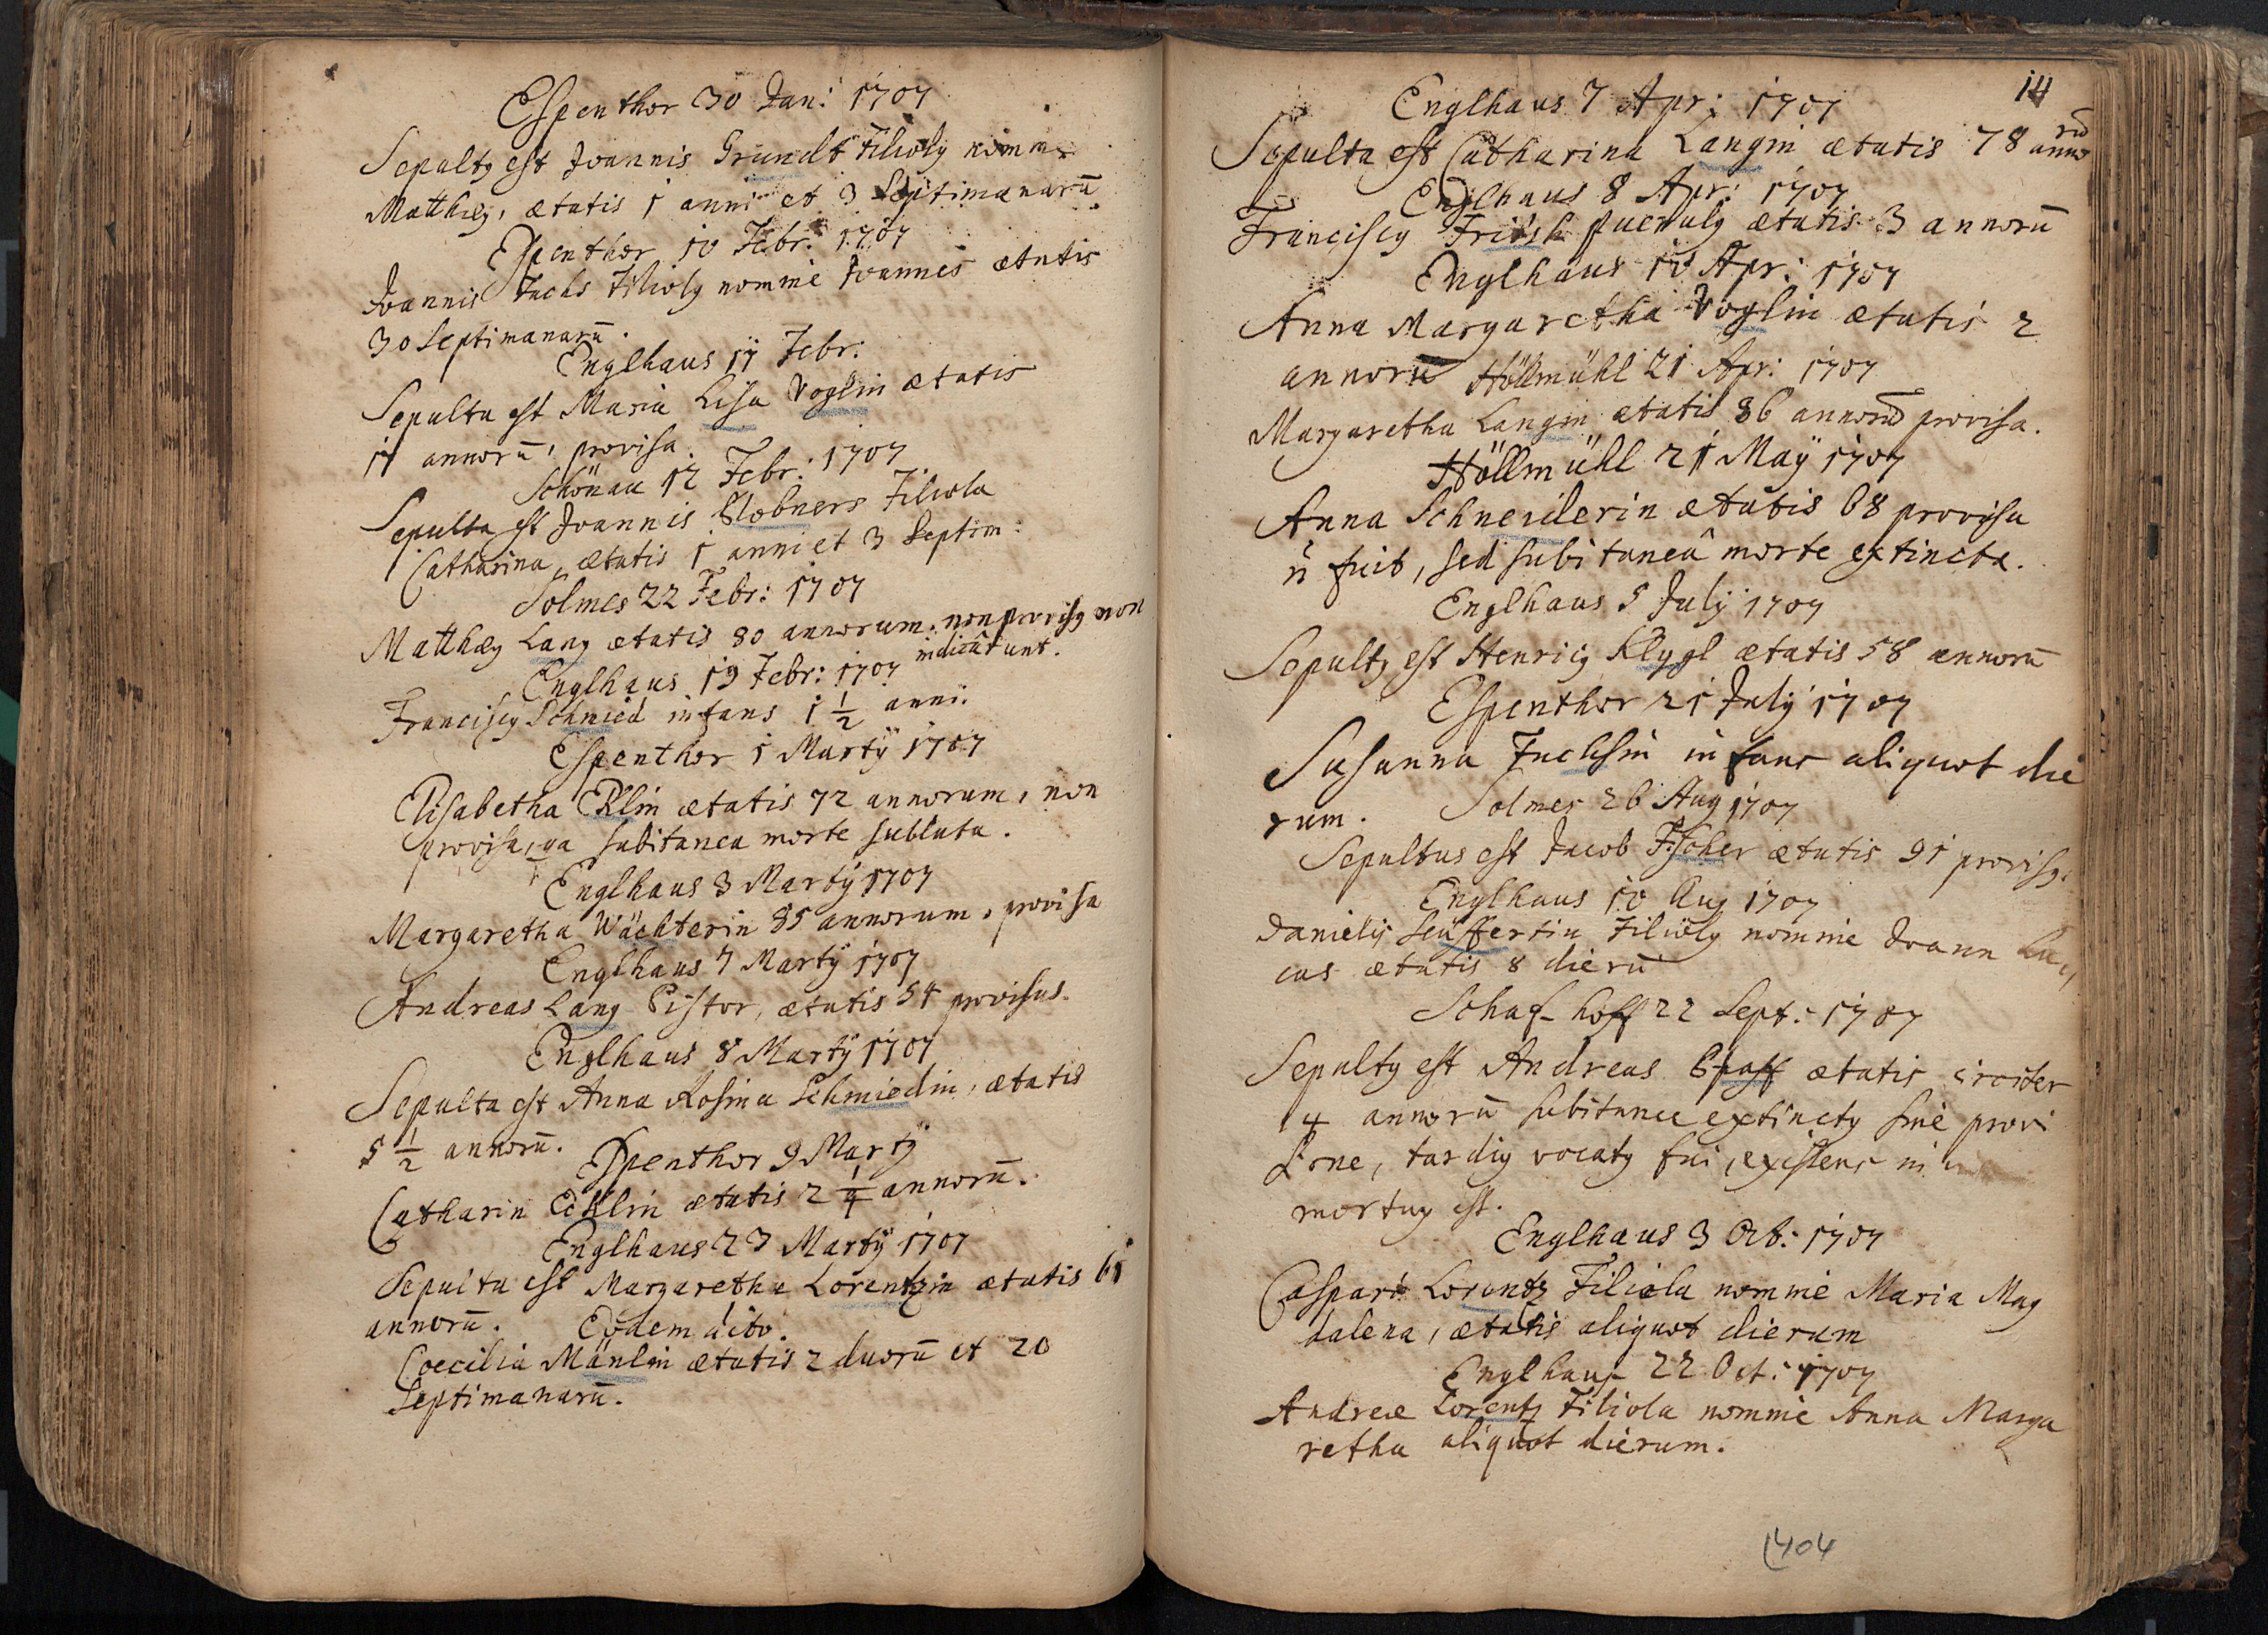 Espenthor 30 Jan: 1707
Sepultg est Joannis Grundt filiolg nomine
Matthæg, ætatis 1 anni et 3 Septimanarū.
Espenthor 10 Febr: 1707
Joannis Fuchs filiolg nomine Joannes ætatis
30 Septimanarū.
Englhaus 11 Febr:
Sepulta est Maria Lisa Voglin ætatis
17 annorū, provisa.
Schönau 12 Febr: 1707
Sepulta est Joannis Filiola
Catharina, ætatis 1 anni et 3 Septim:
Solmes 22 Febr: 1707
Matthæg Lang ætatis 80 annorum. non provisg non
indicârunt.
Englhaus 19 Febr: 1707
Franciscg Schmied infans 1 1/2 anni.
Espenthor 1 Martÿ 1707
Elisabetha ætatis 72 annorum, non
provisa, qa subitanea morte sublata.
Englhaus 3 Martÿ 1707
Margaretha Wächterin 85 annorum, provisa
Englhaus 7 Martÿ 1707
Andreas Lang Pistor, ætatis 54 provisus.
Englhaus 8 Martÿ 1707
Sepulta est Anna Rosina Schmiedin, ætatis
5 1/2 annorū.
Espenthor 9 Martÿ
Catharin Ecklin ætatis 2 1/4 annorū.
Englhaus 23 Martÿ 1707
Sepulta est Margaretha Lorentzin ætatis 61
annorū. Eodem dito.
Coecilia Mänlin ætatis 2 duorū et 20
Septimanarū.
14
Englhaus 7 Apr: 1707
Sepulta est Catharina Langin ætatis 78 anno
rū
Englhaus 8 Apr: 1707
Franciscg Fritsh puerulg ætatis 3 annorū
Englhaus 10 Apr: 1707
Anna Margaretha Voglin ætatis 2
annorū Höllmühl 21 Apr: 1707
Margaretha Langin ætatis 36 annorū provisa.
Höllmühl 21 Maÿ 1707
Anna Schneiderin ætatis 68 provisa
n̄ fuit, sed subitaneâ morte extincta.
Englhaus 5 Julÿ 1707
Sepultg est Henricg Klygl ætatis 58 annorū
Espenthor 21 Julÿ 1707
Susanna Fuchsin infans aliquot die
rum. Solmes 26 Aug 1707
Sepultus est Jacob Fischer ætatis 91 provisg.
Englhaus 10 Aug 1707
Danielis Seüffertin Filiolg nomine Joann
cas ætatis 8 dierū
Schaf-hoff 22 Sept: 1707
Sepultg est Andreas ætatis circiter
4 annorū subitanee extinctg sine provi
sone, tardig vocatg fui, existens in
mortug est.
Englhaus 3 Octb: 1707
Caspari Lorentz Filiola nomine Maria Mag
dalena, ætatis aliquot dierum
Englhaus 22 Oct: 1707
Andreæ Lorentz Filiola nomine Anna Marga
retha aliquot dierum.
1404